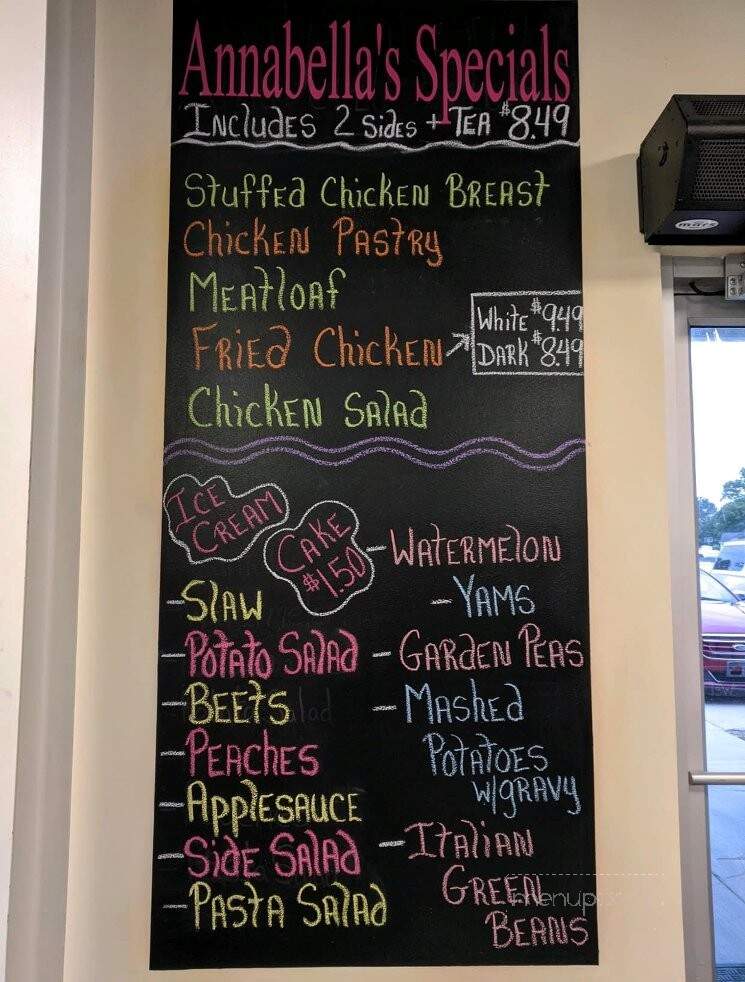 Annabella's Specials
Includes 2 sides + Tea $8.49
Stuffed Chicken Breast
Chicken Pastry
Meatloaf
Fried Chicken
White $9.49
Dark $8.49
Chicken Salad
Ice
Cream
Cake
$1.50
- Slaw
- Potato Salad
- Beets
- Peaches
- Applesauce
- Side Salad
- Pasta Salad
- Watermelon
- Yams
- Garden Peas
- Mashed
Potatoes
w/gravy
- Italian
Green
Beans
mars